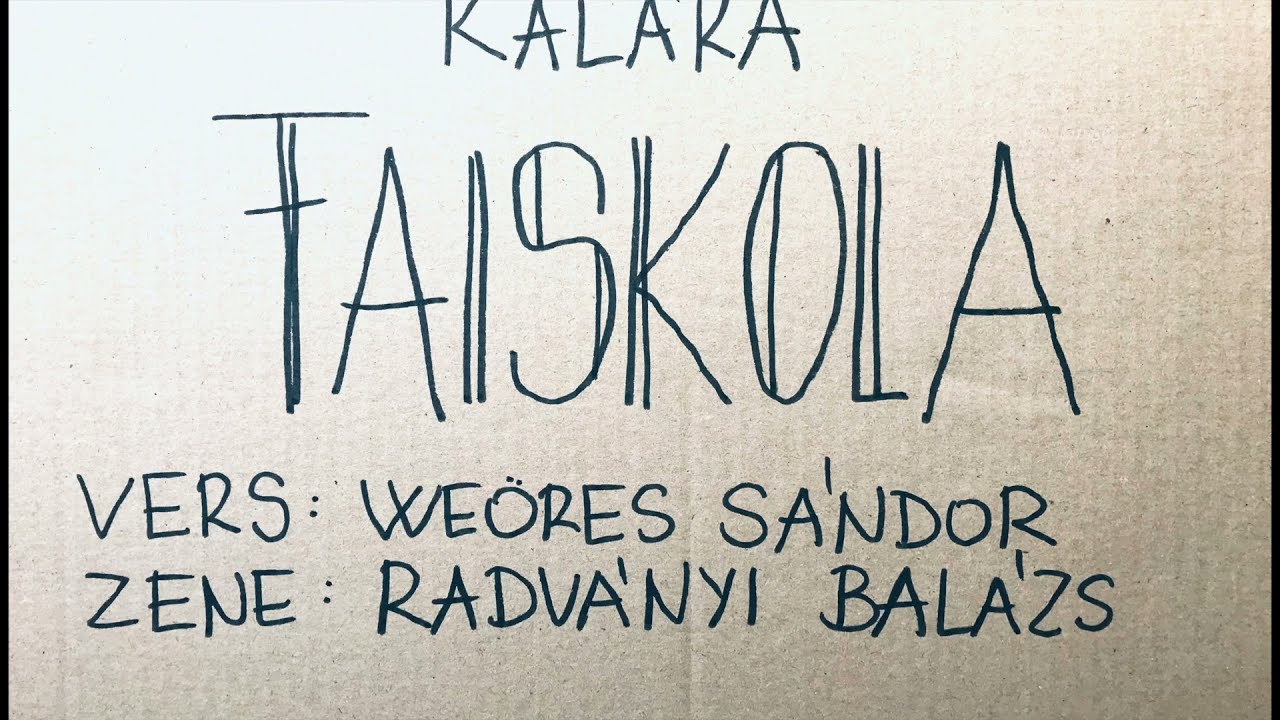 KALÁKA
FAISKOLA
VERS: WEÖRES SÁNDOR
ZENE: RADVÁNYI BALÁZS